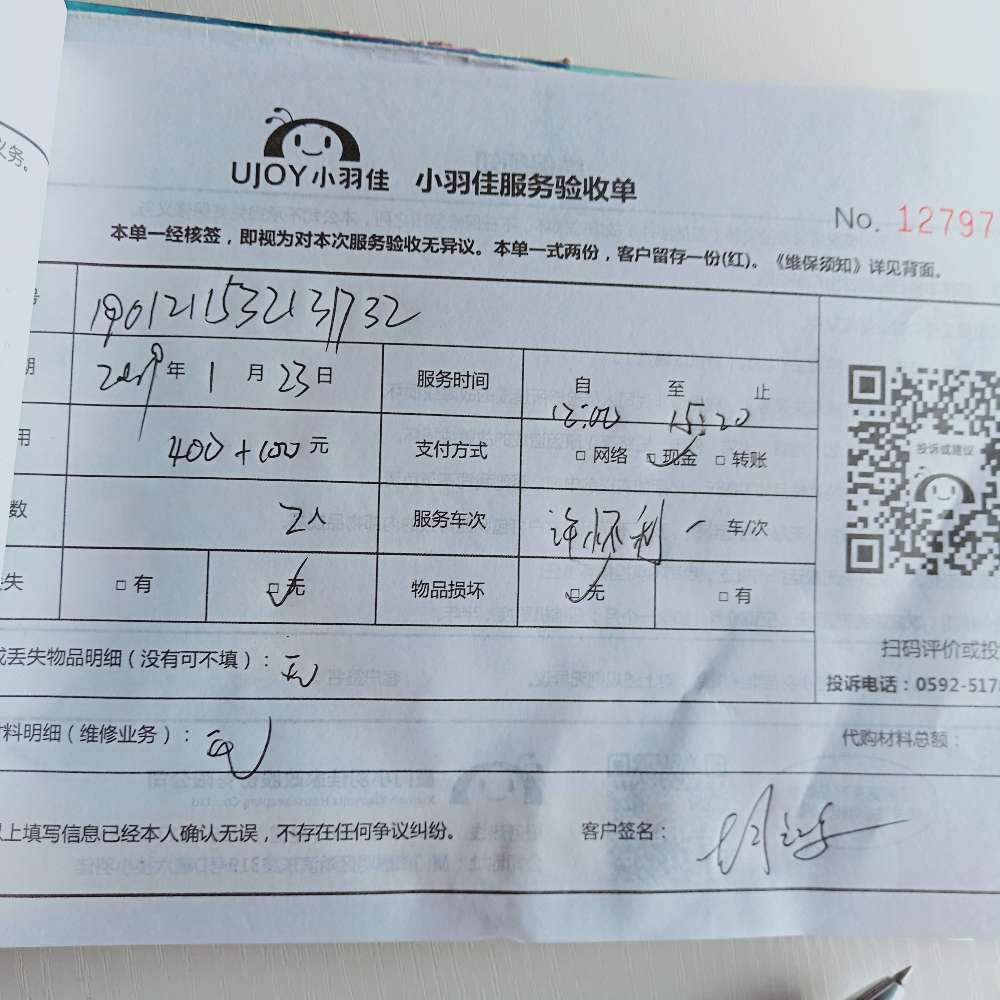 义务。
UJOY小羽佳 小羽佳服务验收单
No. 12797
本单一经核签，即视为对本次服务验收无异议。本单一式两份，客户留存一份(红)。《维保须知》详见背面。
号 1901211532131732
期 2019年1月23日 服务时间 自 至 止
12:00 15:20
用 400+100元 支付方式 □网络 □现金 □转账
投诉或建议
数 2人 服务车次 许怀利 一 车/次
失 □有 □无 物品损坏 □无 □有
或丢失物品明细（没有可不填）：无
扫码评价或投
投诉电话：0592-5178
材料明细（维修业务）：无
代购材料总额：
以上填写信息已经本人确认无误，不存在任何争议纠纷。 客户签名：